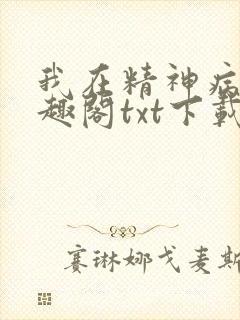 我在精神病
趣阁txt下载
赛琳娜戈麦斯